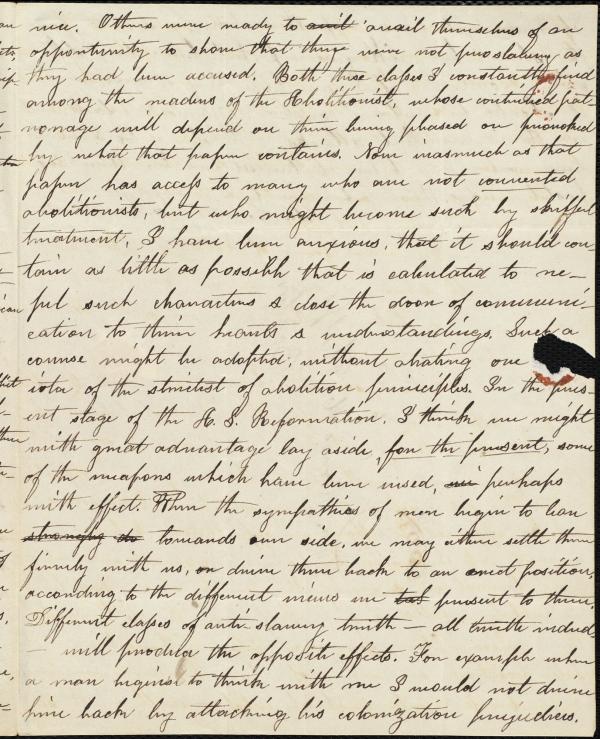 nice. Others were ready to avail avail themselves of an
opportunity to show that they were not proslavery, as
they had been accused. Both these classes I constantly find
among the readers of the Abolitionist, whose continued pat-
ronage will depend on their being pleased or provoked
by what that paper contains. Now inasmuch as that
paper has access to many who are not converted
abolitionists, but who might become such by skilful
treatment, I have been anxious, that it should con
tain as little as possible that is calculated to re-
pel such characters & close the door of communi-
cation to their hearts & understandings. Such a
course might be adopted, without abating one
iota of the strictest of abolition principles. In the pres-
ent stage of the A. S. Reformation, I think we might
with great advantage lay aside, for the present, some
of the weapons which have been used, perhaps
with effect. When the sympathies of men begin to lean
strongly do towards our side, we may either settle them
firmly with us, or drive them back to an erect position,
according to the different views we present to them.
Different classes of anti-slavery truth — all truth indeed
— will produce the opposite effects. For example when
a man begins to think with me I would not drive
him back by attacking his colonization prejudices.